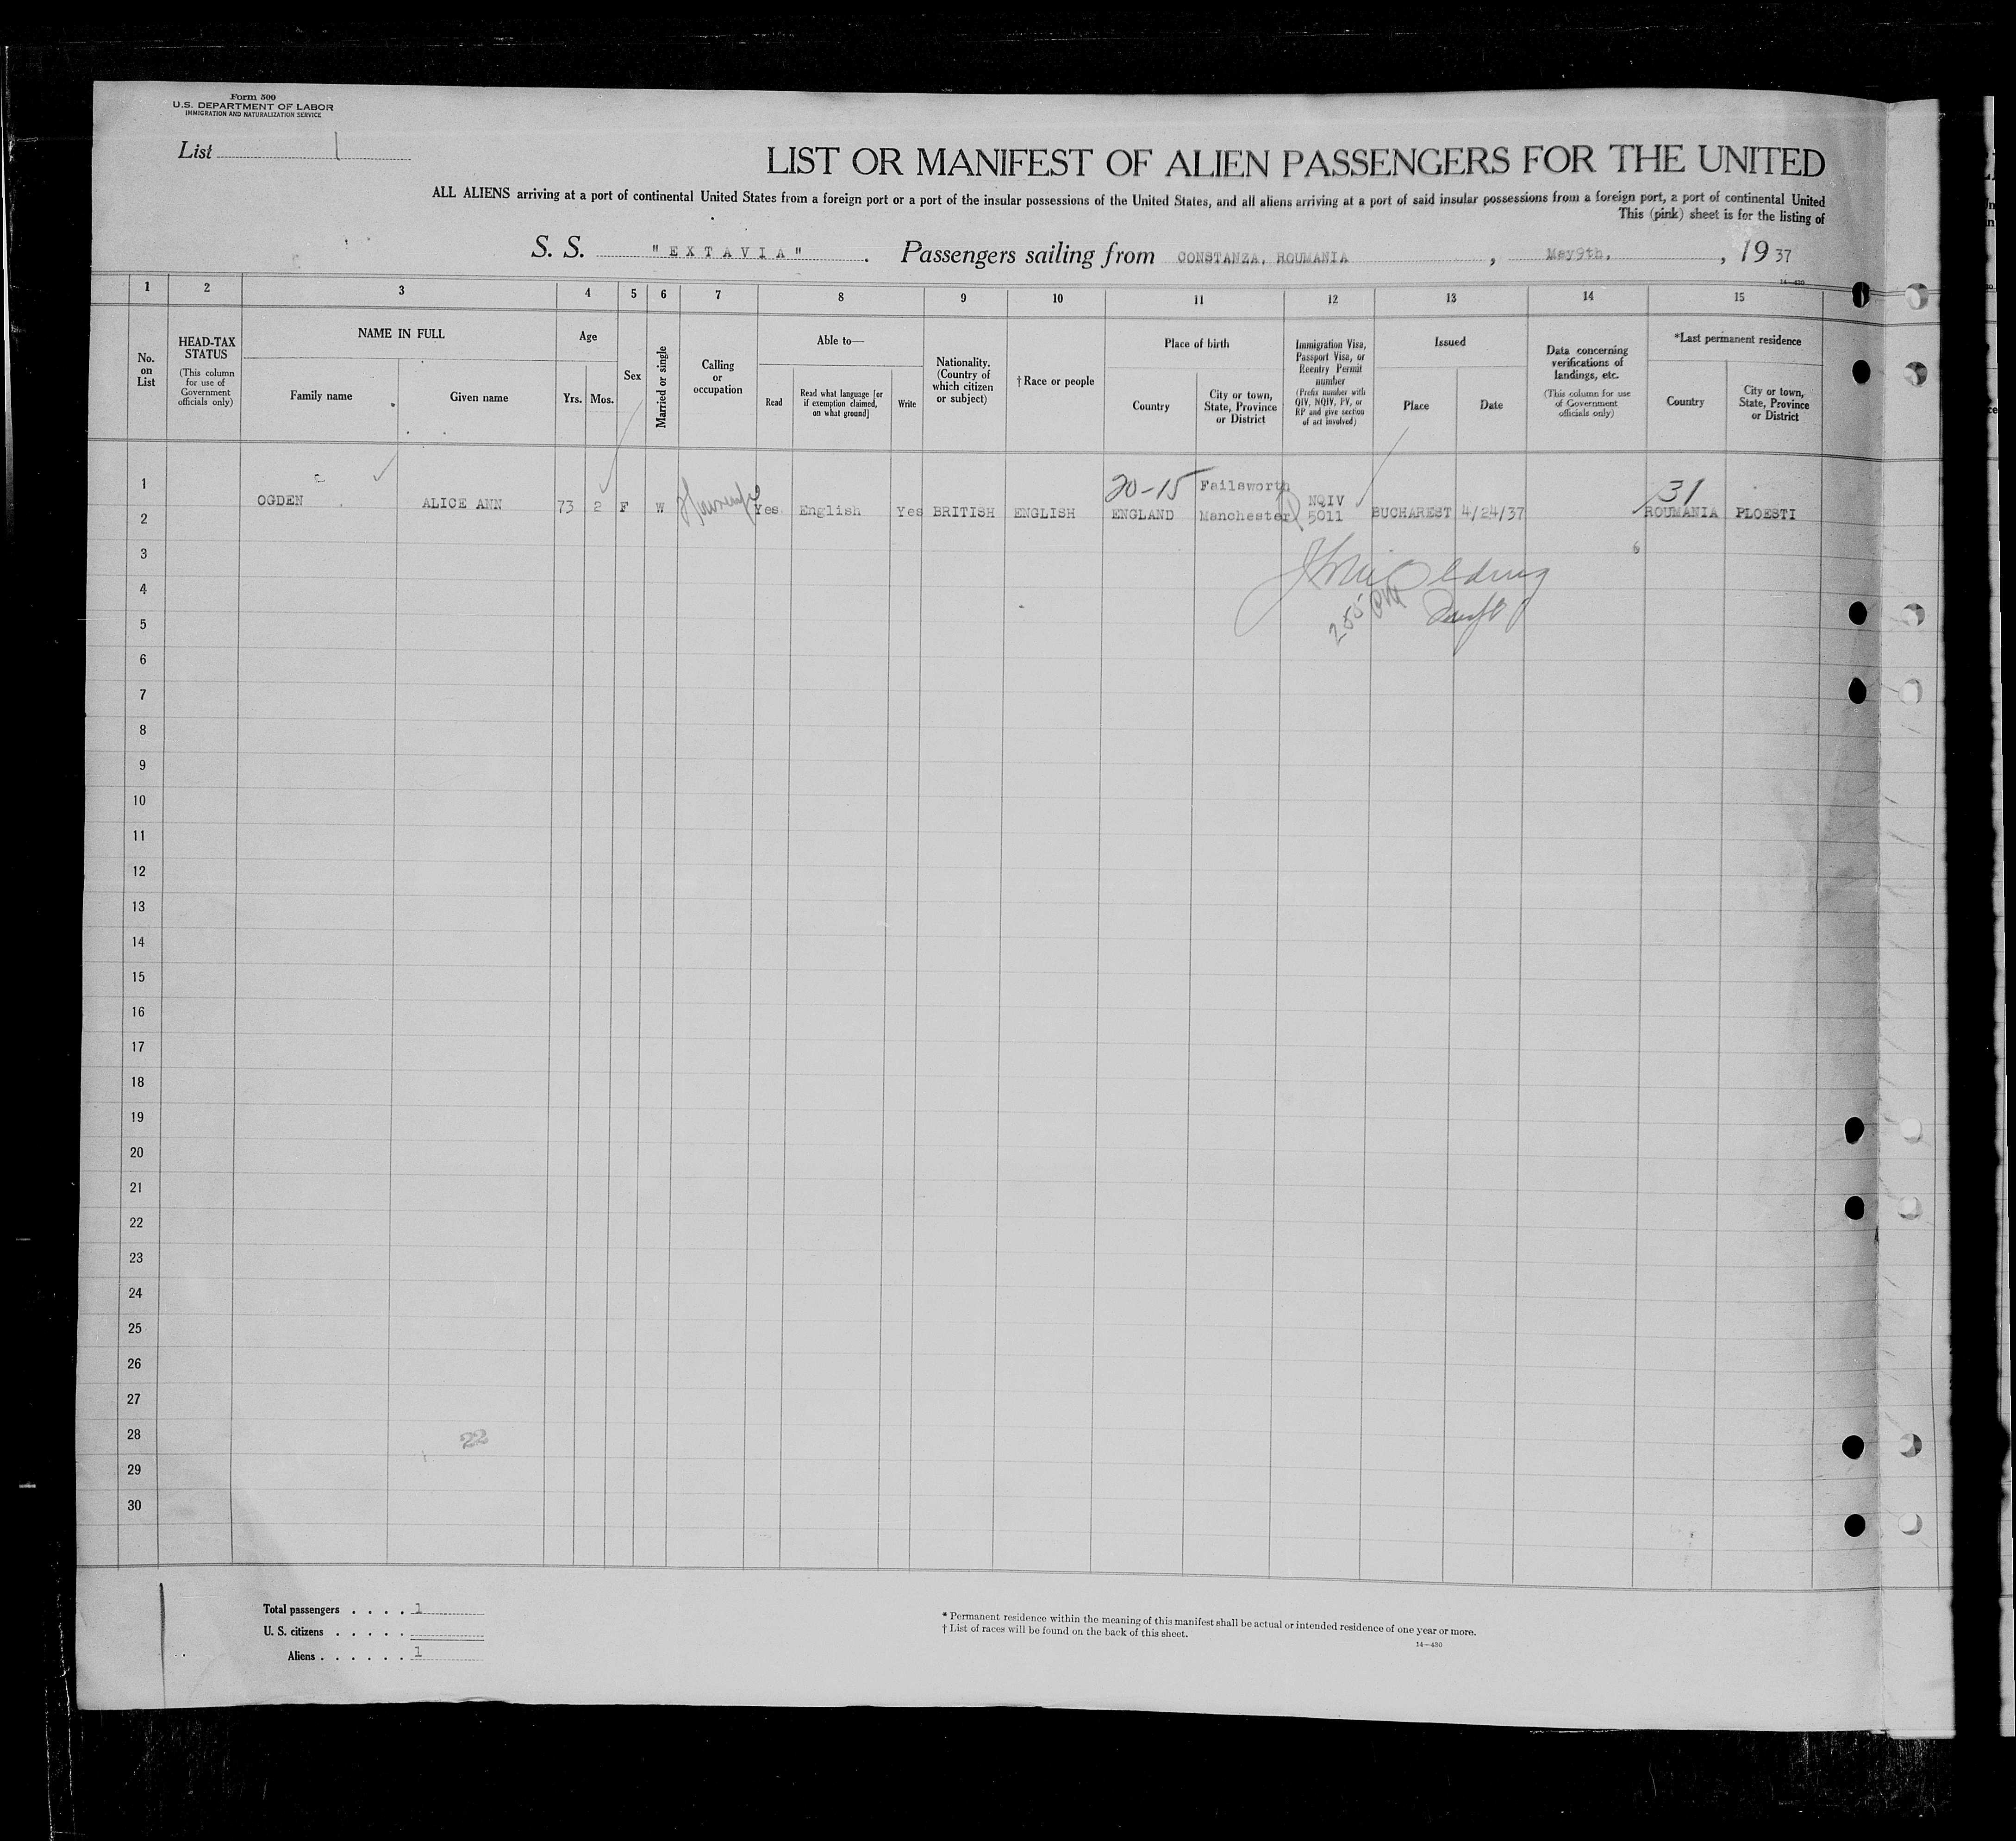 Form 500
U.S. DEPARTMENT OF LABOR
IMMIGRATION AND NATURALIZATION SERVICE
List 1
LIST OR MANIFEST OF ALIEN PASSENGERS FOR THE UNITED
ALL ALIENS arriving at a port of continental United States from a foreign port or a port of the insular possessions of the United States, and all aliens arriving at a port of said insular possessions from a foreign port, a port of continental United
This (pink) sheet is for the listing of
S. S. "EXTAVIA". Passengers sailing from CONSTANZA, ROUMANIA, May9th., 1937
14—430
1 2 3 4 5 6 7 8 9 10 11 12 13 14 15
No. on List
HEAD-TAX STATUS (This column for use of Government officials only)
NAME IN FULL
Family name
Given name
Age
Yrs. Mos.
Sex
Married or single
Calling or occupation
Able to—
Read
Read what language [or if exemption claimed, on what ground]
Write
Nationality. (Country of which citizen or subject)
† Race or people
Place of birth
Country
City or town, State, Province or District
Immigration Visa, Passport Visa, or Reentry Permit number (Prefix number with QIV, NQIV, PV, or RP and give section of act involved)
Issued
Place
Date
Data concerning verifications of landings, etc. (This column for use of Government officials only)
*Last permanent residence
Country
City or town, State, Province or District
1 20-15 Failsworth 31
OGDEN ALICE ANN 73 2 F W Housewife Yes English Yes BRITISH ENGLISH ENGLAND Manchester NQIV 5011 BUCHAREST 4/24/37 ROUMANIA PLOESTI
2
3
4
5
6
7
8
9
10
11
12
13
14
15
16
17
18
19
20
21
22
23
24
25
26
27
28 22
29
30
Total passengers . . . . 1
U. S. citizens . . . . .
Aliens . . . . . . 1
* Permanent residence within the meaning of this manifest shall be actual or intended residence of one year or more.
† List of races will be found on the back of this sheet.
14—430